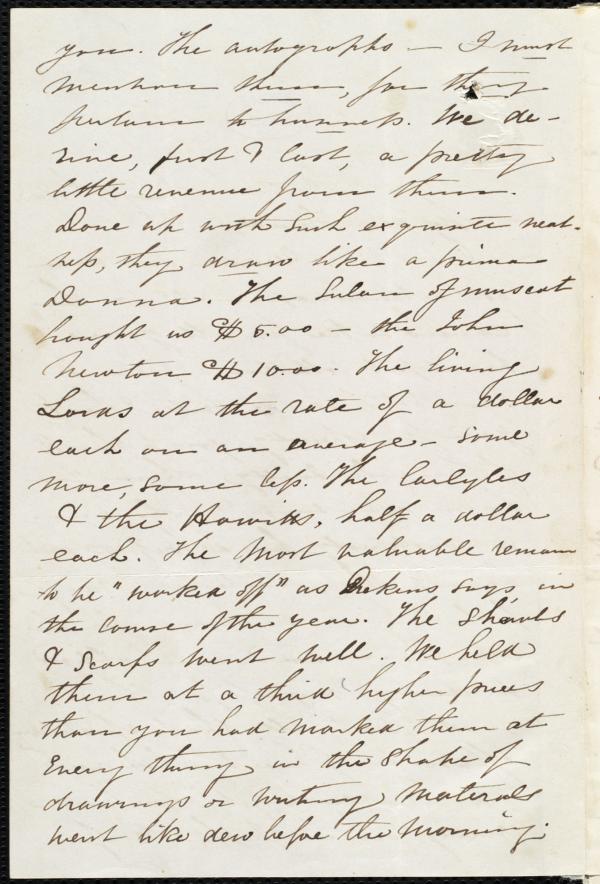 you. The autographs — I must
mention them, for they
pertain to business. We de-
rive, first & last, a pretty
little revenue from them.
Done up with such exquisite neat-
ness, they draw like a prima
Donna. The Sultan of Muscat
bought us $5.00 — the John
Newton $10.00. The living
Lords at the rate of a dollar
each on an average — some
more, some less. The Carlyles
& the Howitts, half a dollar
each. The most valuable remain
to be "worked off" as Dickens says, in
the course of the year. The shawls
& scarfs went well. We held
them at a third higher prices
than you had marked them at
Every thing in the shape of
drawings or writing materials
went like dew before the morning.